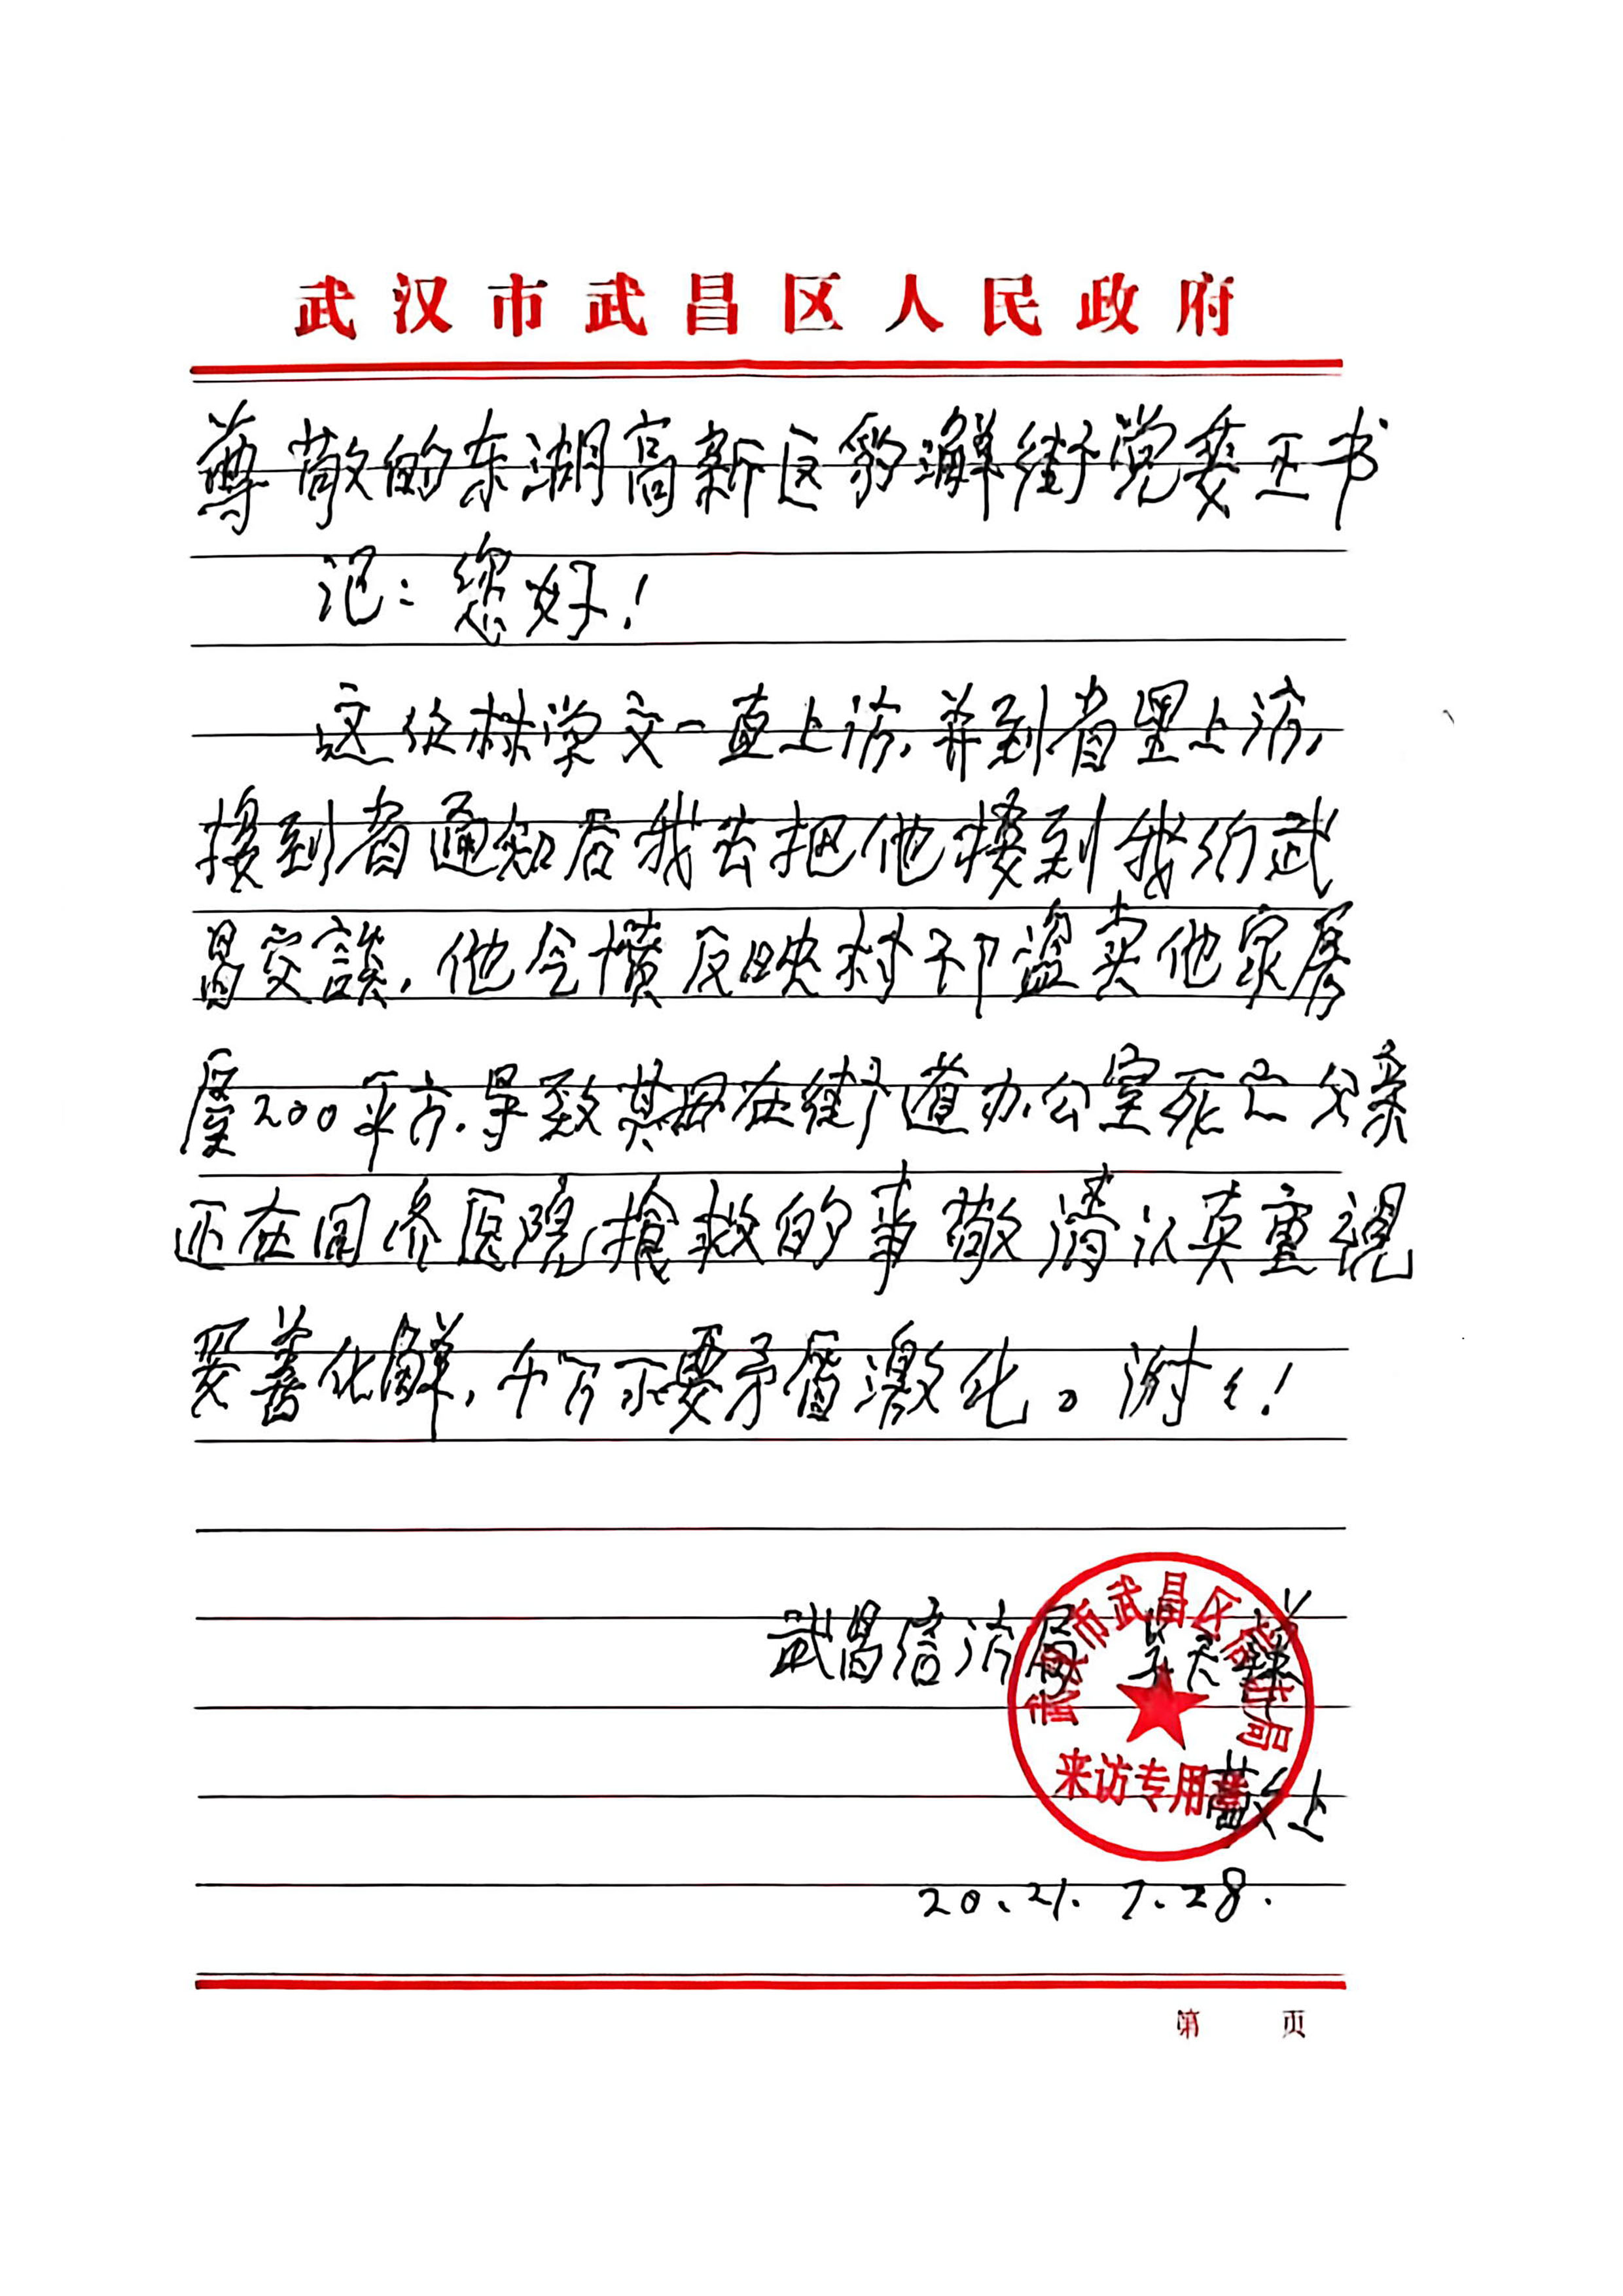 武汉市武昌区人民政府
尊敬的东湖高新区豹澥街党委王书
记：您好！
这位林学文一直上访，并到省里上访，
接到省通知后我去把他接到我们武
昌交谈，他气愤反映村干卩盗卖他家房
屋200平方，导致其母在街道办公室死亡父亲
还在同济医院抢救的事敬请认真重视
妥善化解，千万不要矛盾激化。谢々！
武昌信访局
武汉市武昌区信访局
来访专用章
敬上
20.21.7.28.
第 页